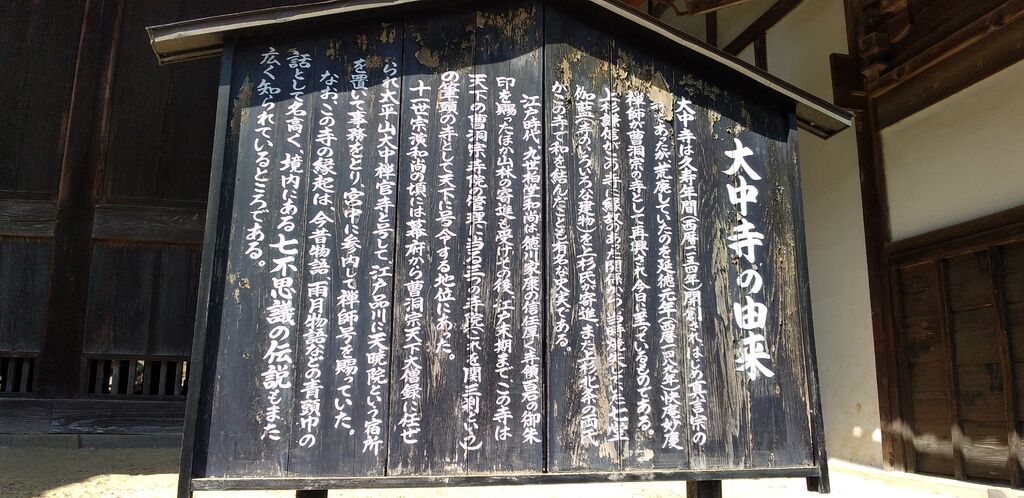 大中寺の由来
大中寺は久寿年間(西暦一一五四年)開創されはじめ真言宗の
寺であったが荒廃していたのを延徳元年(西暦一四八九年)快庵妙慶
禅師が曹洞宗の寺として再興され今日に至っているものである。
上杉謙信がこの寺に縁故のあった関係から
伽藍(寺のいろいろな建物)を上杉氏が寄進、また上杉北条の両氏
がこの寺で和を結んだことも有名な史実である。
江戸時代、九世柏堂和尚は徳川家康の信信厚く寺領百石の御朱
印を賜ったほか山林の寄進も受けその後、江戸末期までこの寺は
天下の曹洞宗寺院の管理に当る三つの寺院(これを関三刹という)
の筆頭の寺として天下に号令する地位にあった。
十一世宗演和尚の頃には幕府から曹洞宗天下大僧録に任せ
られ太平山大中禅官寺と号して、江戸品川に天暁院という宿所
を置いて事務をとり宮中に参内して禅師号を賜っていた。
なおこの寺の縁起は、今昔物語、雨月物語などの青頭巾の
話として名高く、境内にある七不思議の伝説もまた
広く知られているところである。